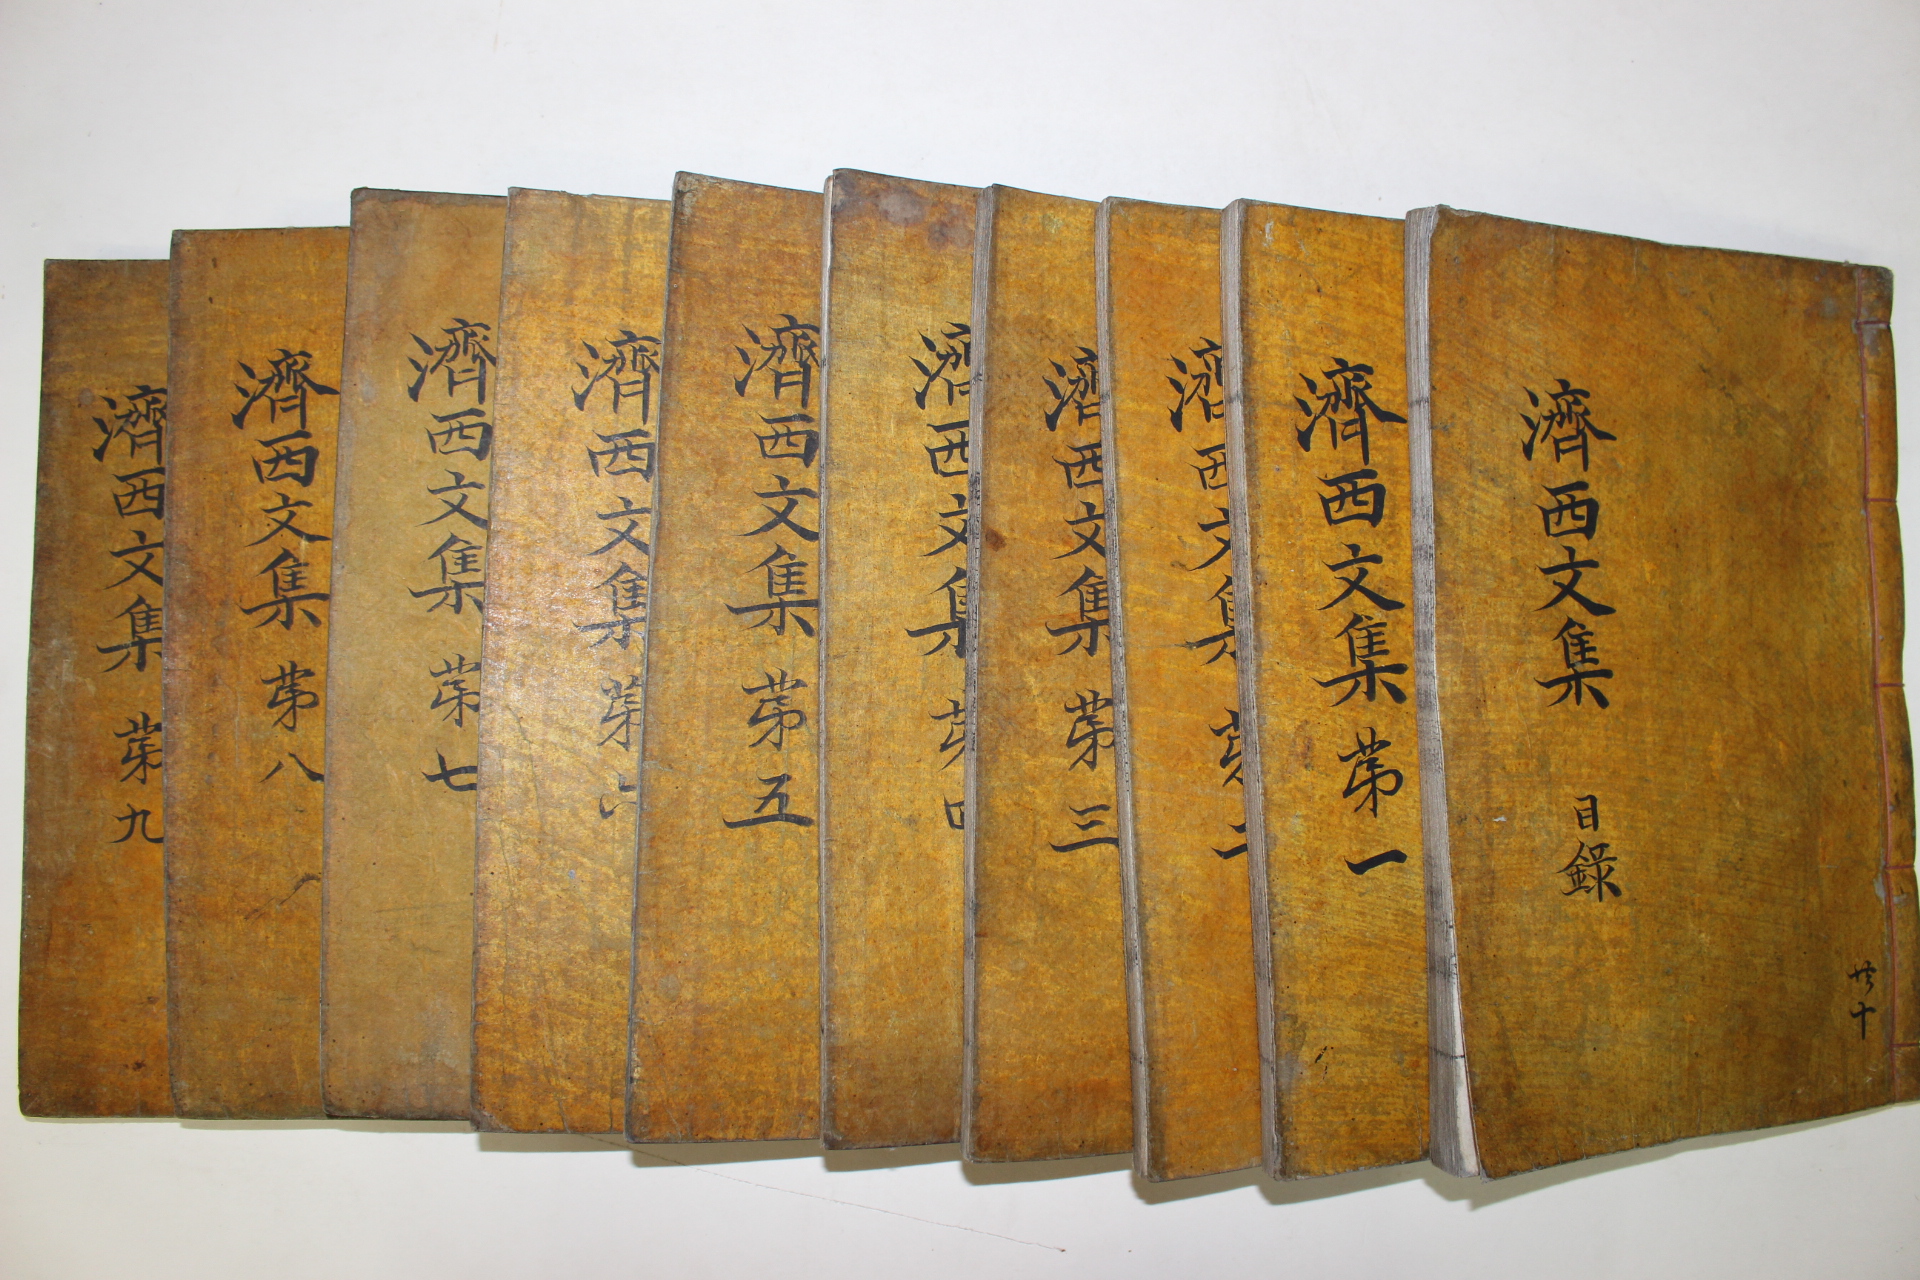 濟西文集 目錄
共十
濟西文集 苐一
濟西文集 苐二
濟西文集 苐三
濟西文集 苐四
濟西文集 苐五
濟西文集 苐六
濟西文集 苐七
濟西文集 苐八
濟西文集 苐九